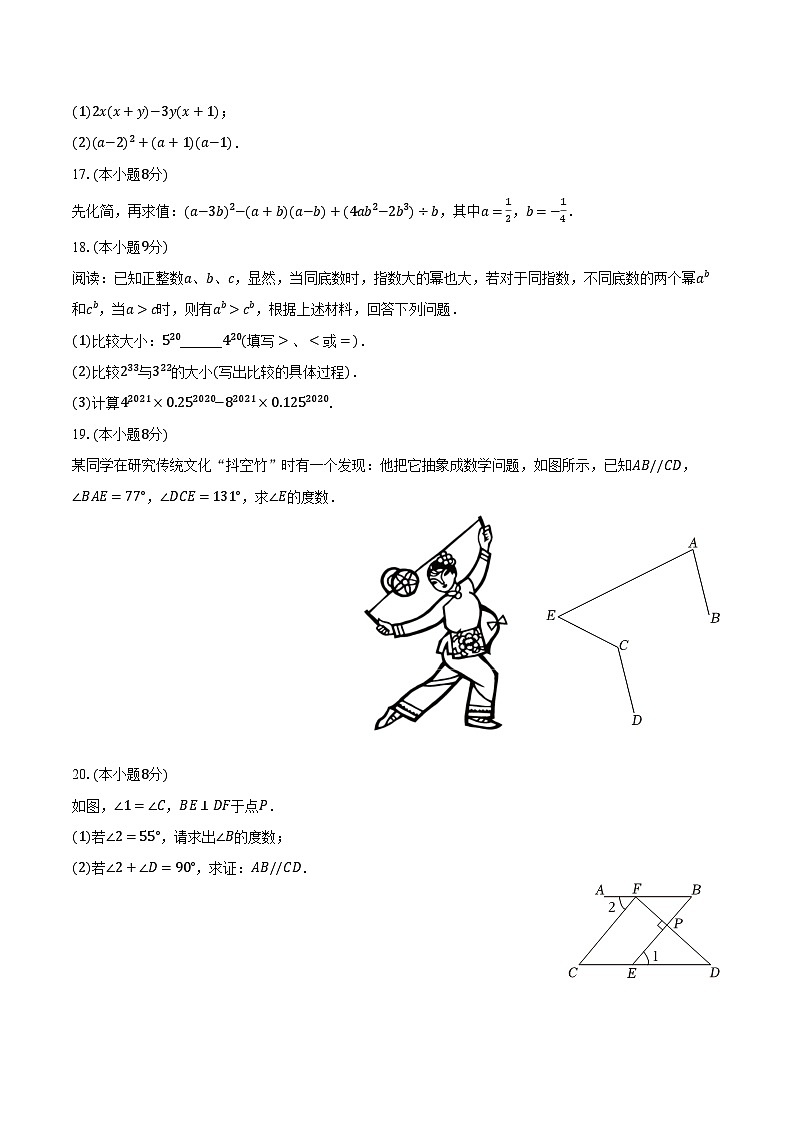 (1)2x(x+y)−3y(x+1);
(2)(a−2)²+(a+1)(a−1).
17.(本小题8分)
先化简，再求值：(a−3b)²−(a+b)(a−b)+(4ab²−2b³)÷b，其中a=1/2，b=−1/4.
18.(本小题9分)
阅读：已知正整数a、b、c，显然，当同底数时，指数大的幂也大，若对于同指数，不同底数的两个幂aᵇ
和cᵇ，当a>c时，则有aᵇ>cᵇ，根据上述材料，回答下列问题.
(1)比较大小：5²⁰______4²⁰(填写>、<或=).
(2)比较2³³与3²²的大小(写出比较的具体过程).
(3)计算4²⁰²¹×0.25²⁰²⁰−8²⁰²¹×0.125²⁰²⁰.
19.(本小题8分)
某同学在研究传统文化“抖空竹”时有一个发现：他把它抽象成数学问题，如图所示，已知AB//CD，
∠BAE=77°，∠DCE=131°，求∠E的度数.
A
E
B
C
D
20.(本小题8分)
如图，∠1=∠C，BE⊥DF于点P.
(1)若∠2=55°，请求出∠B的度数；
(2)若∠2+∠D=90°，求证：AB//CD.
A F B
2
P
1
C E D